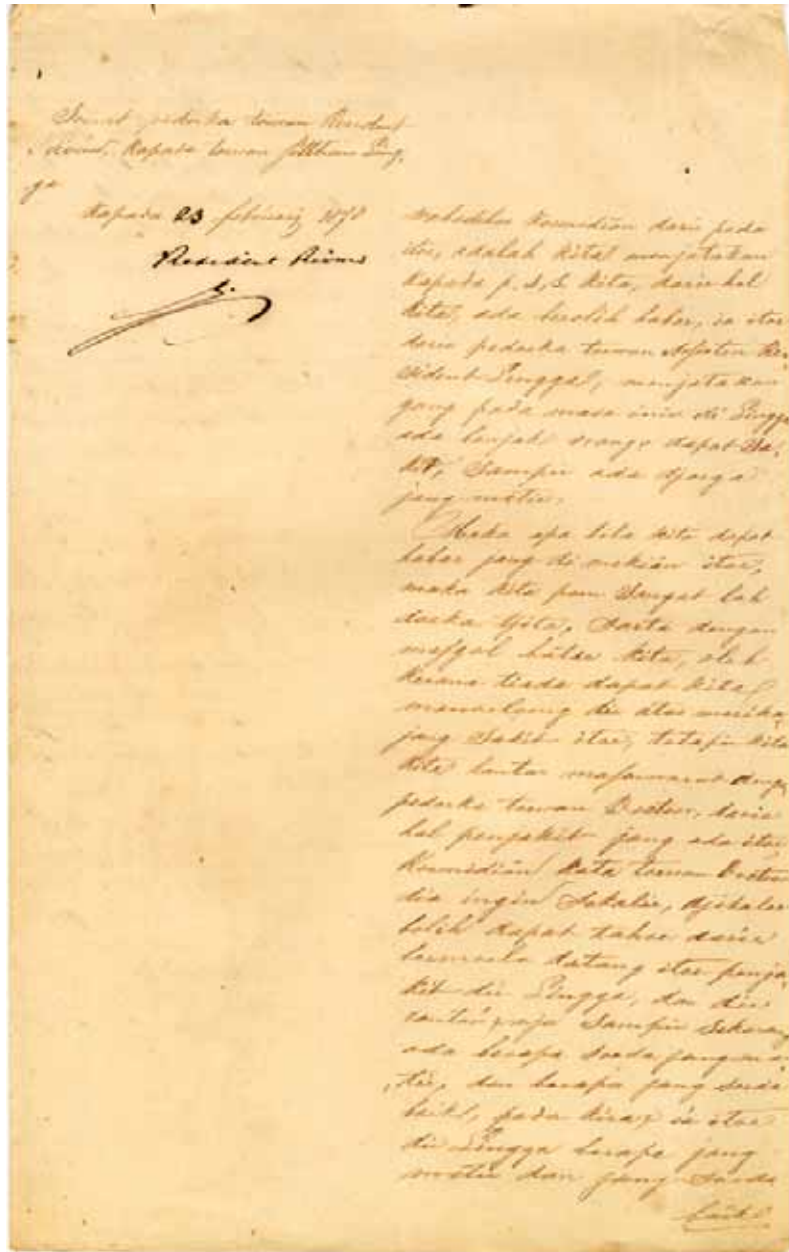 Soerat padoeka toewan Resident
Riouw, kapada toewan Sulthan Ling,
ga
kapada 23 februarij 1878
Resident Riouw
wabadahoe koemedian dari pada
itoe, adalah kita menjatakan
kapada p. S, S kita, darie hal
kita, ada beroleh kabar, ia itoe
darie padoeka toewan Assisten Re,
sident Lingga, menjatakan
jang pada masa inie di Lingga
ada banjak orang dapat sa,
kit, sampei ada djoega
jang matie.
Maka apa bila kita dapat
kabar jang di mekian itoe,
maka kita poen sangat lah
doeka tjita, serta dengan
masgoel hatie kita, oleh
kerana tiada dapat kita
menoeloeng die atas marika
jang sakit itoe, tetapie kita
kita lantas masawarat denga
padoeka toewan Doctor, darie
hal penjakit jang ada itoe
koemedian kata toewan Doctor
dia ingin sekalie, djikalau
bolih dapat tahoe darie
bermoela datang itoe penja
kit die Lingga, dan die
sampei sekarang
ada berapa soeda jang ma
tie, dan berapa jang soeda
baik, pada kira2 ia itoe
die Lingga berapa jang
matie dan jang soeda
baik